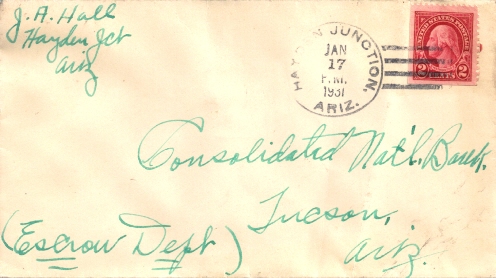 J. A. Hall
Hayden Jct
Ariz
HAYDEN JUNCTION,
JAN
17
P.M.
1931
ARIZ.
UNITED STATES POSTAGE
2 CENTS 2
Consolidated Nat'l. Bank.
Tucson,
(Escrow Dept)
Ariz.